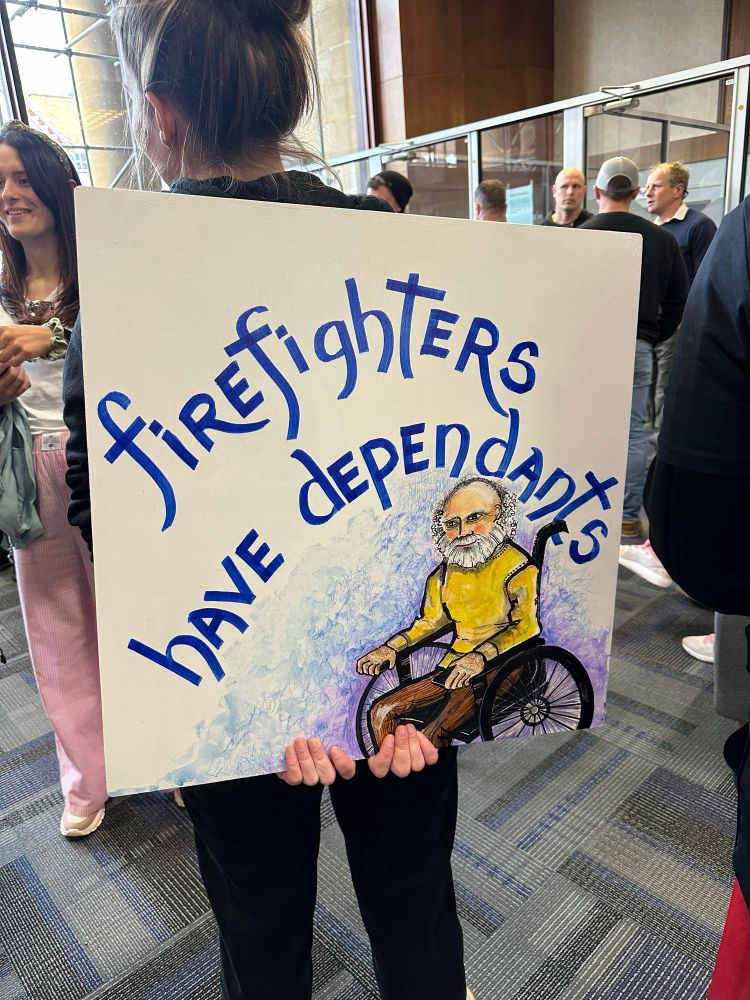 fiREfighTERS
have dEpENdaNTS